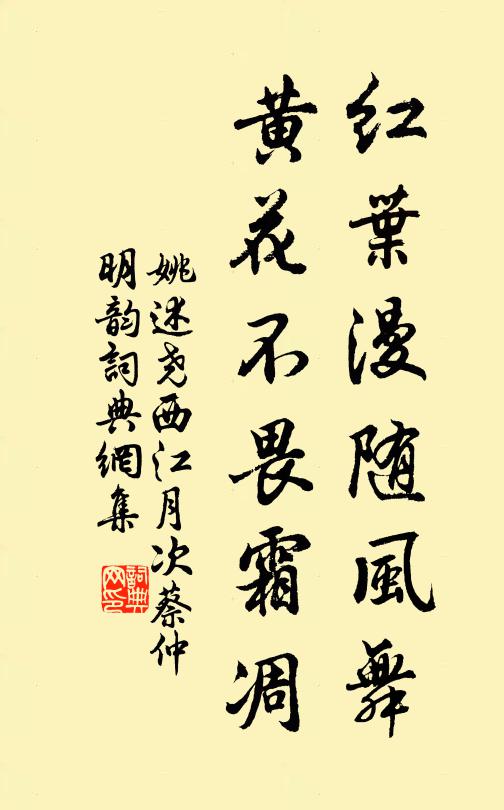 红葉漫随風舞
黄花不畏霜凋
姚述尧西江月次蔡仲
明韵詞典網集
詞典
网印